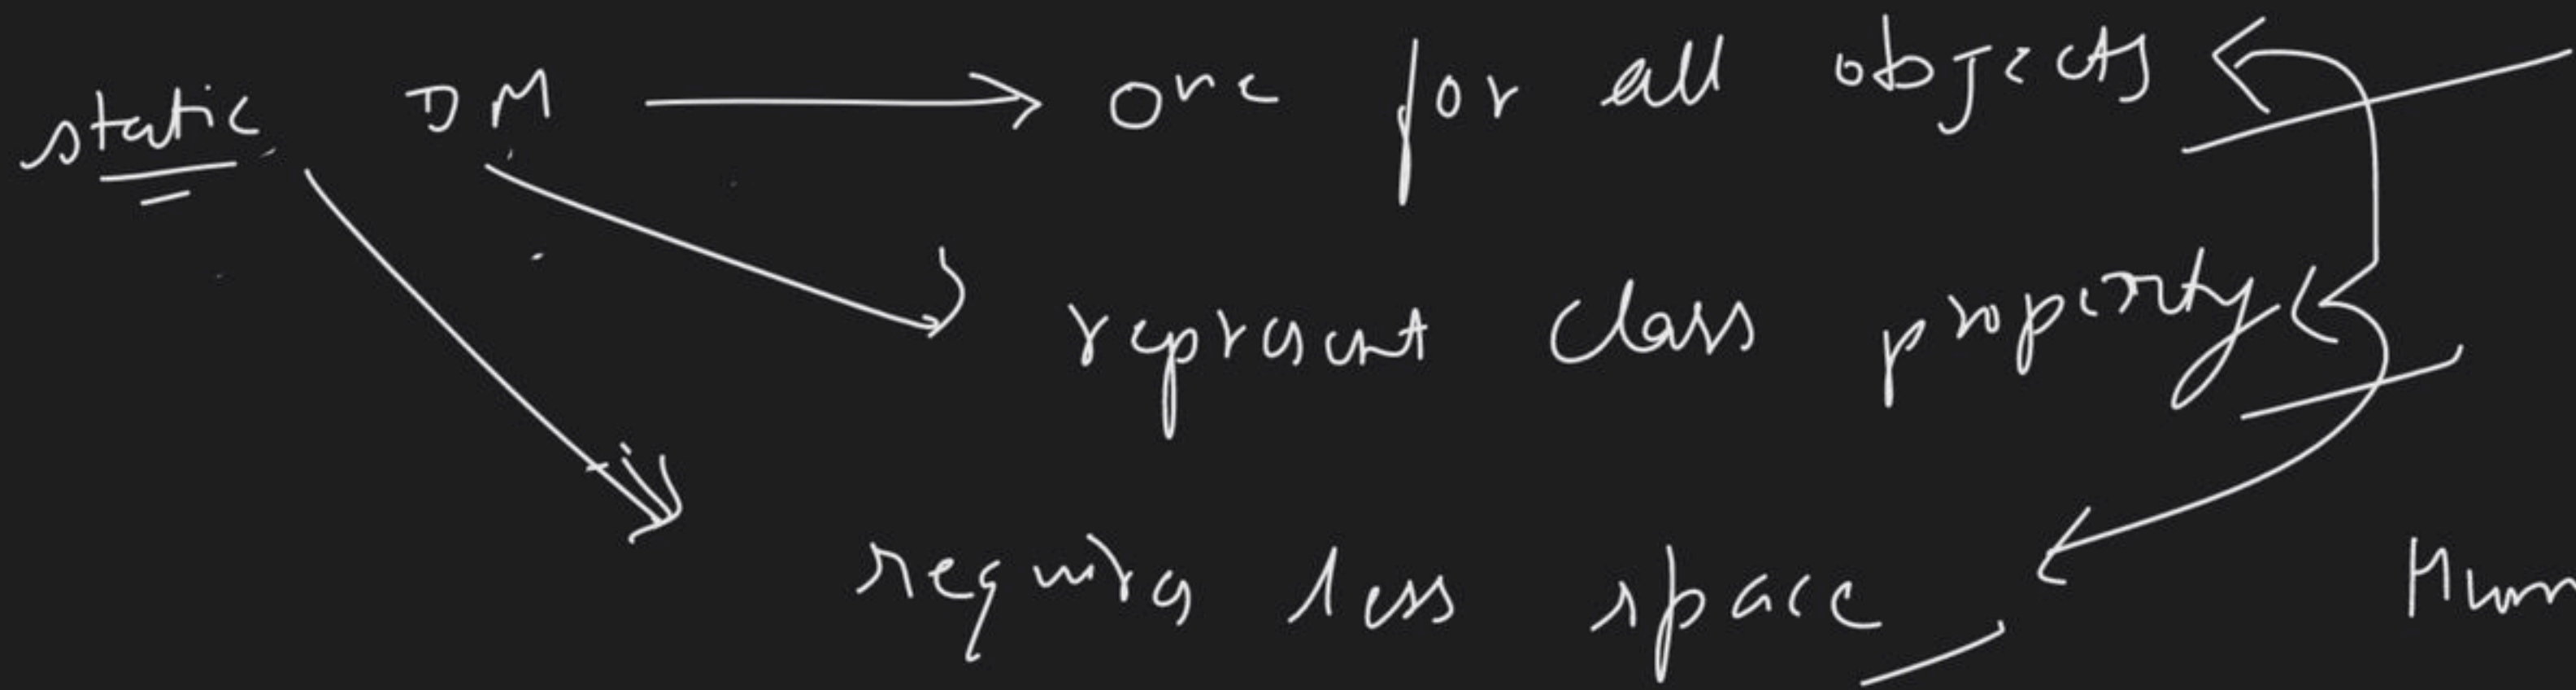 static DM → one for all objects
represent class property
requires less space
Hum